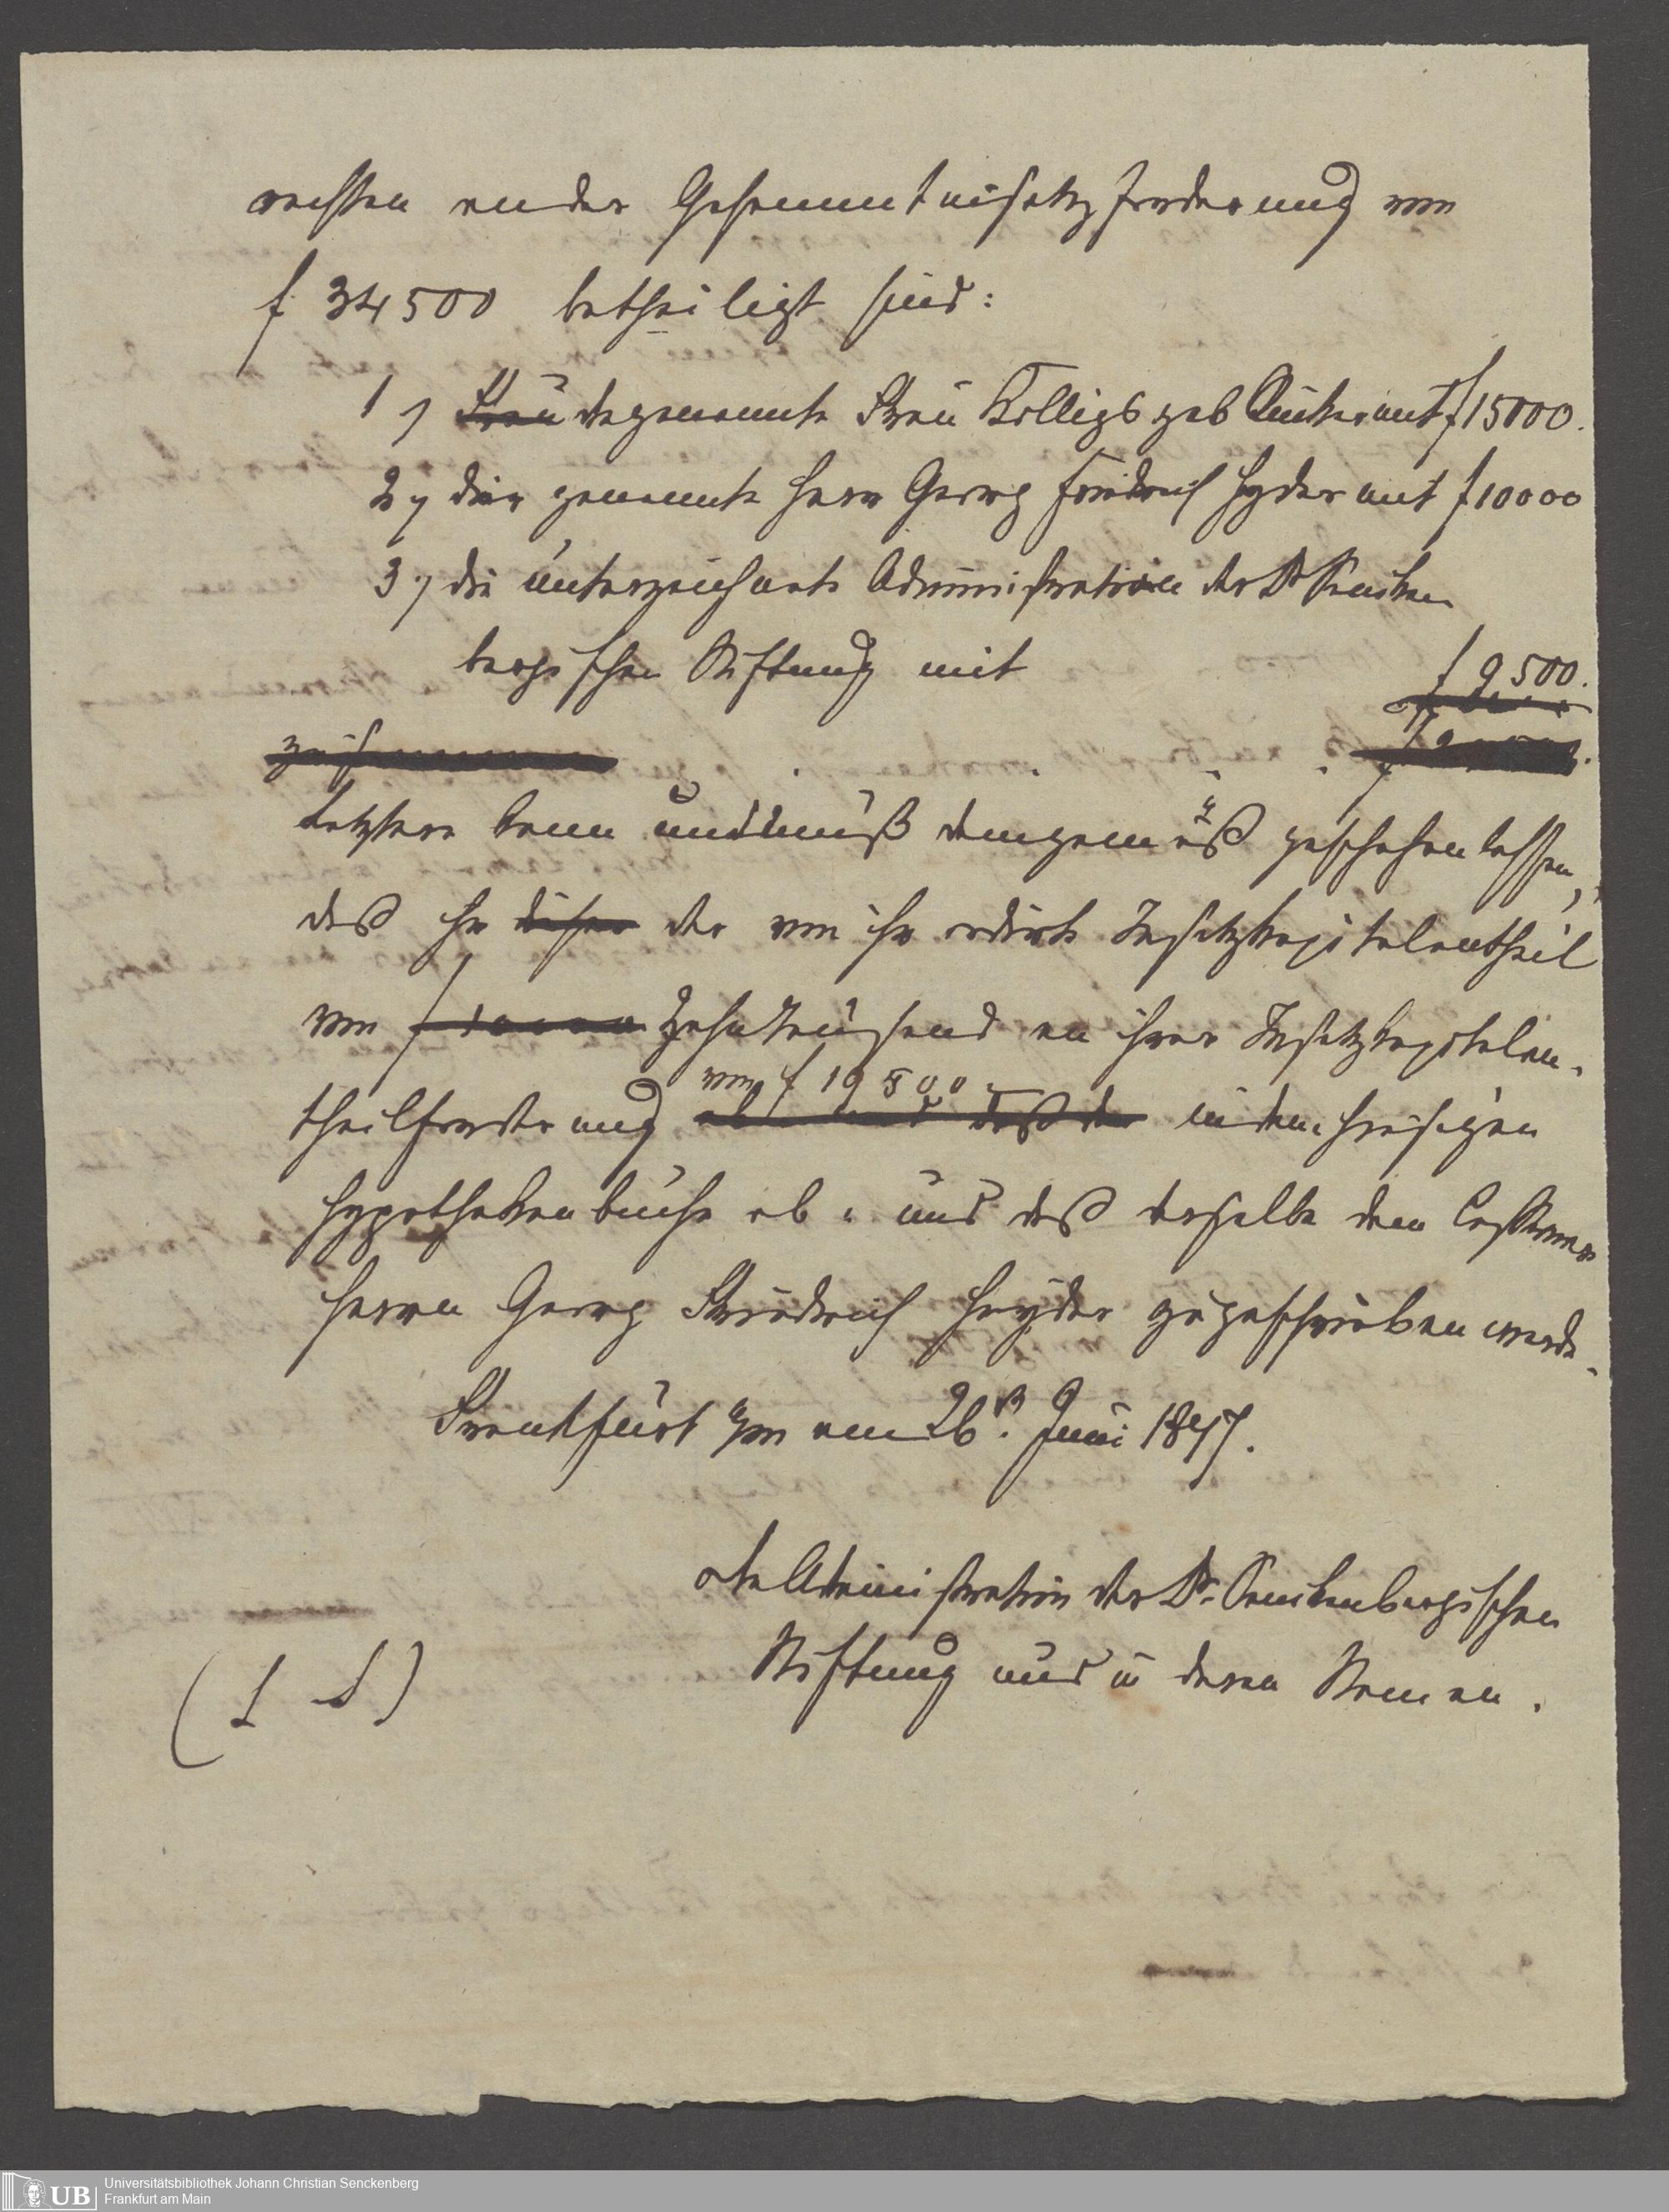 rechten an der Gesammtinsatzforderung von
f 34500 betheiligt sind:
1) Frau dergenannte Frau Kolligs geb mit f 15000.
2) der genannte Herr Georg Friedrich Heyder mit f 10000
3) die unterzeichnete Administration der Dr Senken
bergischen Stiftung mit f 9500.
zusammen
Letztere kann und muß demgemäß geschehen lassen,
daß ihr dieser der von ihr cedirte Insatzkapitalantheil
von f 10000 Zehntausend an ihrer Insatzkapitalan-
von f 19500
theilforderung ab und daß der in dem hiesigen
Hypothekenbuche ab- und daß derselbe dem Cessionar
Herrn Georg Friedrich Heyder zugeschrieben werde.
Frankfurt a/m am 26. Juni 1847.
Die Administration der Dr. Senkenbergischen
Stiftung und in deren Namen.
(L S)
UB Universitätsbibliothek Johann Christian Senckenberg
Frankfurt am Main